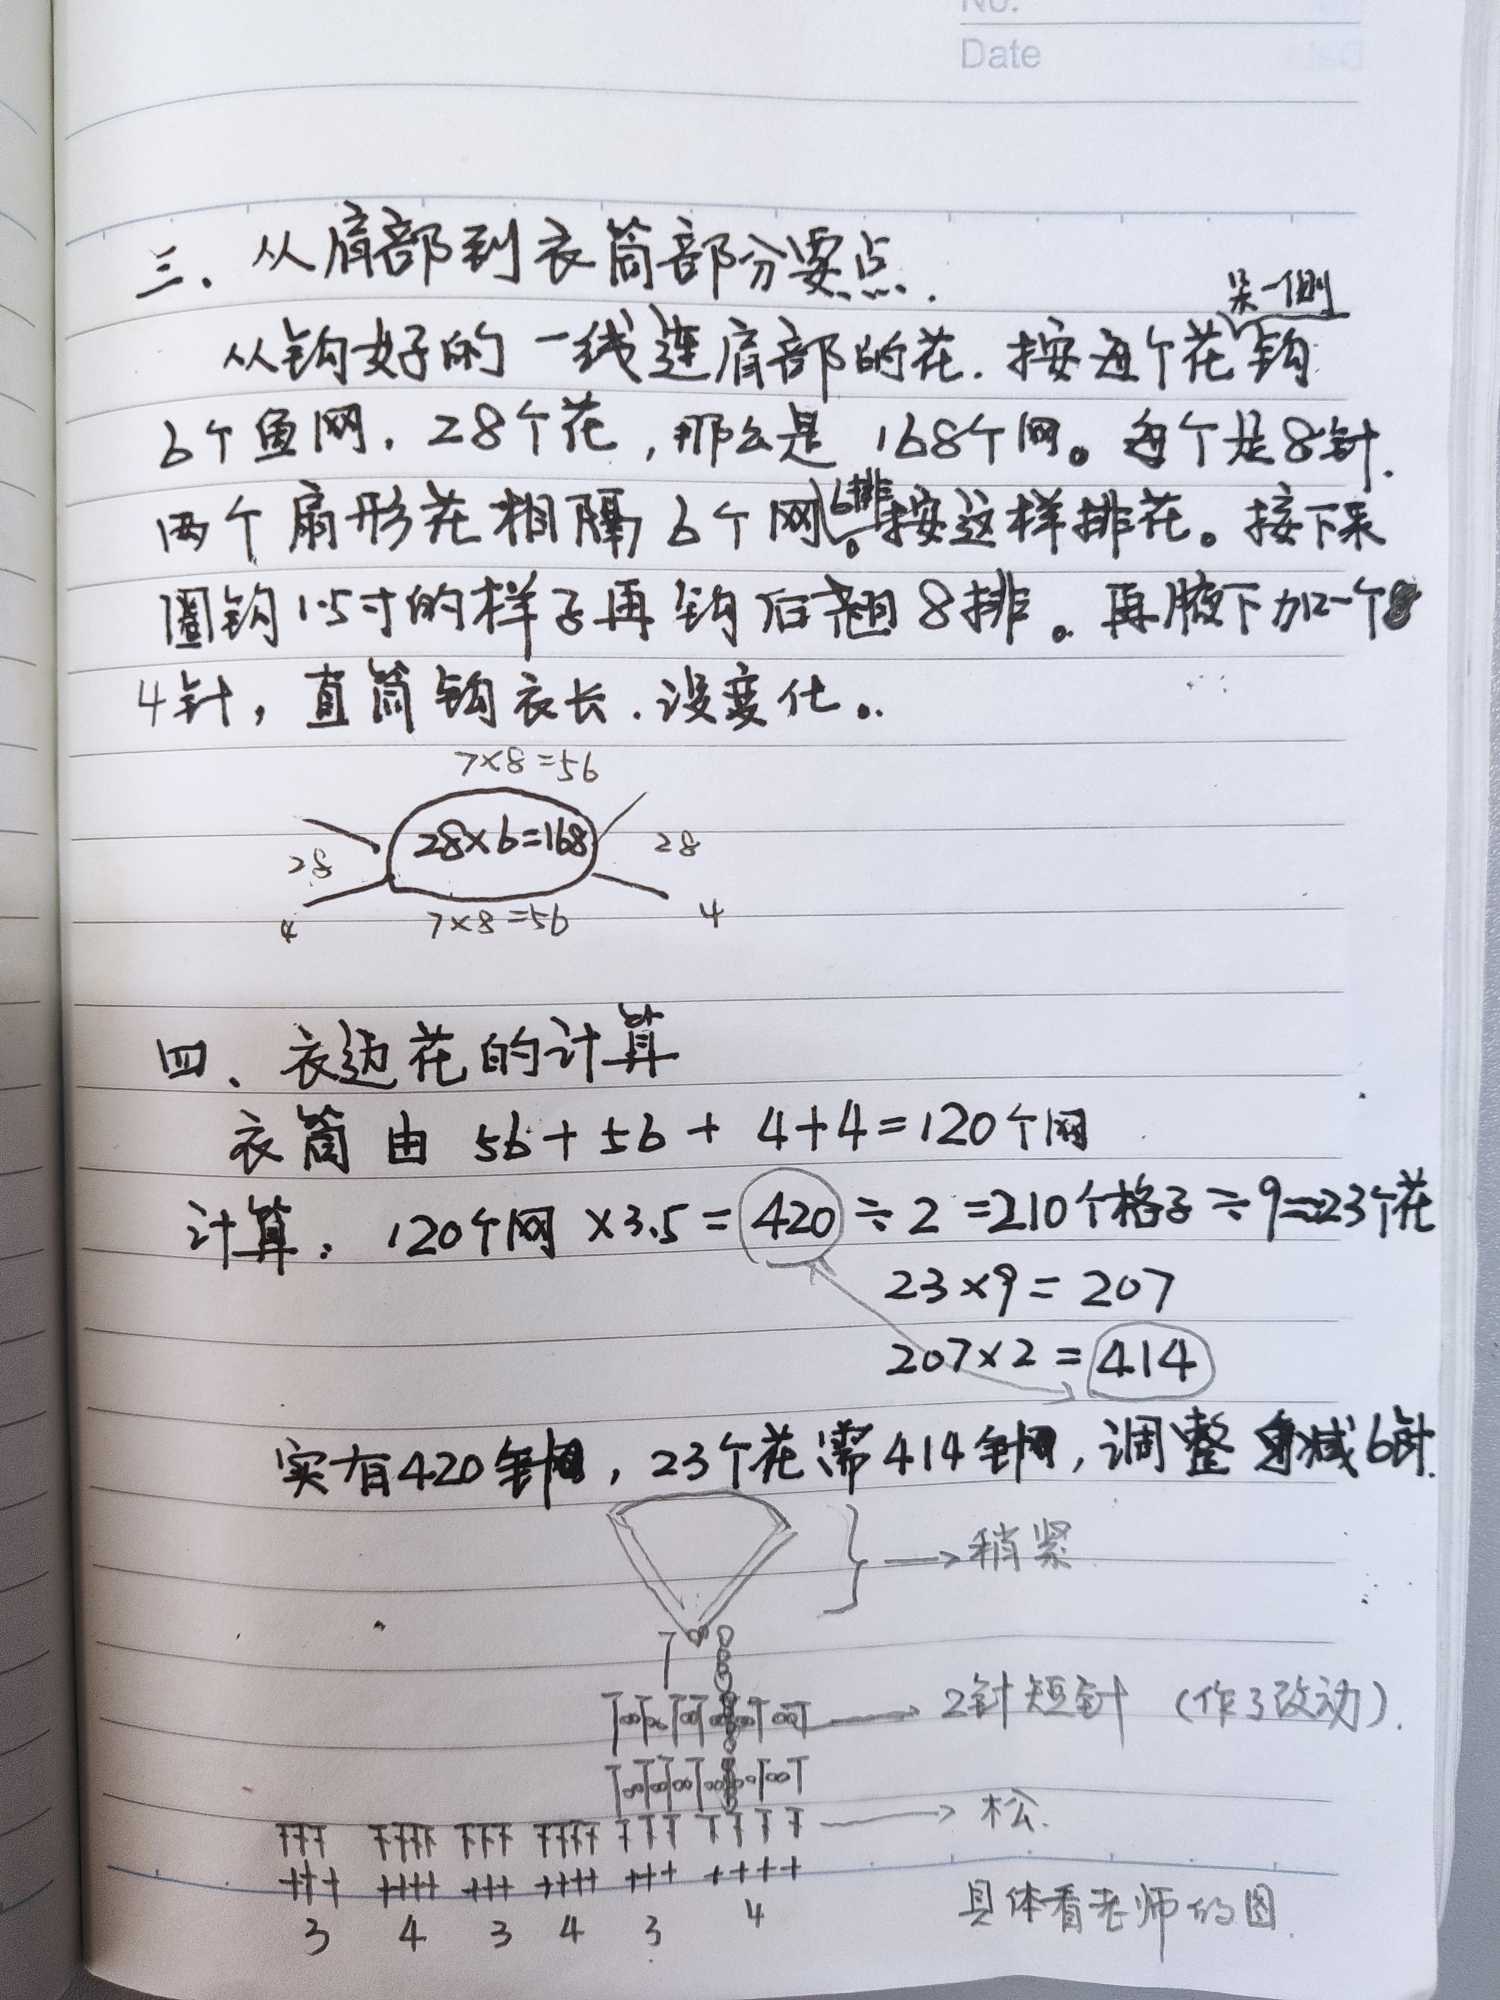 No.
Date
三、从肩部到衣筒部分要点.
另一侧
从钩好的一线连肩部的花.按每个花钩
6个鱼网,28个花,那么是168个网。每个是8针.
6排
两个扇形花相隔6个网。按这样排花。接下来
圈钩1.5寸的样子再钩后翘8排。再腋下加一个
4针,直筒钩衣长.没变化。
7×8=56
28×6=168
28 28
4 4
7×8=56
四、衣边花的计算
衣筒由 56+56+4+4=120个网
计算:120个网×3.5=420÷2=210个格子÷9=23个花
23×9=207
207×2=414
实有420针,23个花需414针,调整减6针.
稍紧
2针短针(作了改动).
松.
3 4 3 4 3 4
具体看老师的图.